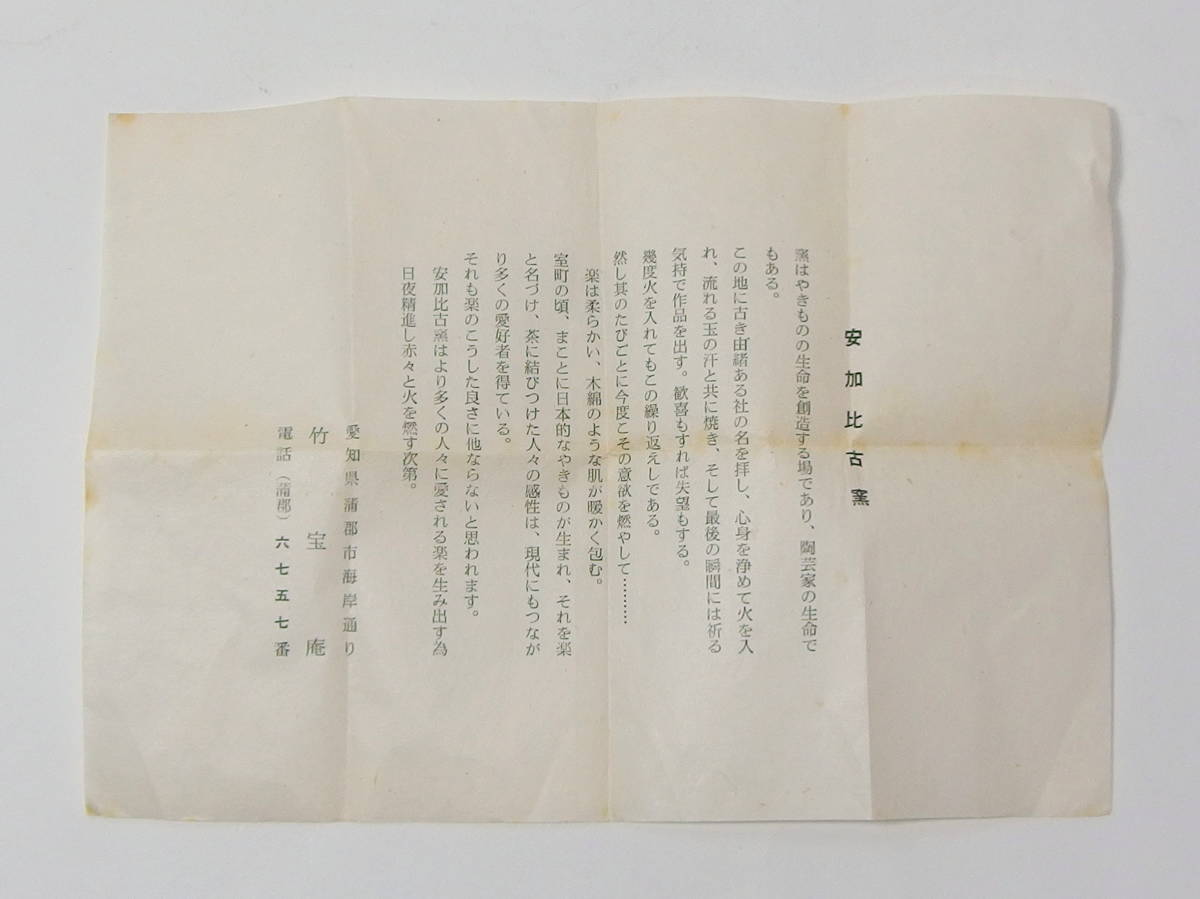 安加比古窯
窯はやきものの生命を創造する場であり、陶芸家の生命で
もある。
この地に古き由緒ある社の名を拝し、心身を浄めて火を入
れ、流れる玉の汗と共に焼き、そして最後の瞬間には祈る
気持で作品を出す。歓喜もすれば失望もする。
幾度火を入れてもこの繰り返えしである。
然し其のたびごとに今度こその意欲を燃やして…………
楽は柔らかい、木綿のような肌が暖かく包む。
室町の頃、まことに日本的なやきものが生まれ、それを楽
と名づけ、茶に結びつけた人々の感性は、現代にもつなが
り多くの愛好者を得ている。
それも楽のこうした良さに他ならないと思われます。
安加比古窯はより多くの人々に愛される楽を生み出す為
日夜精進し赤々と火を燃す次第。
愛知県蒲郡市海岸通り
竹宝庵
電話（蒲郡）六七五七番